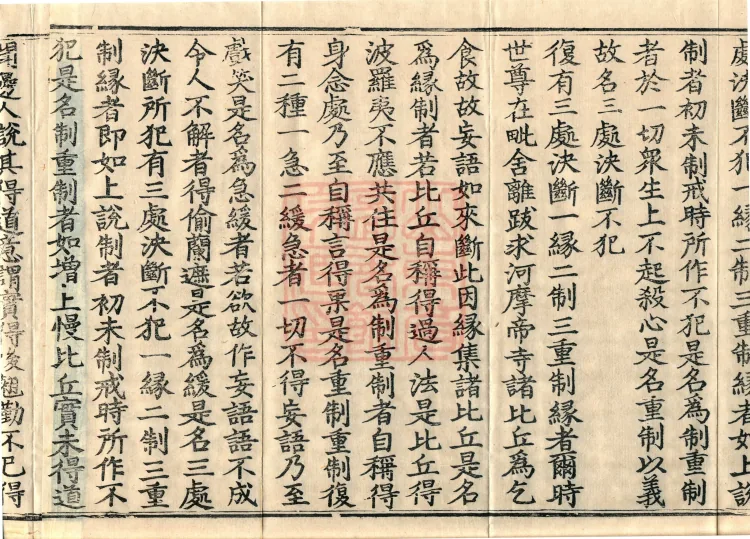 處決斷不犯一緣二制三重制緣者如上說
制者初未制戒時所作不犯是名爲制重制
者於一切衆生上不起殺心是名重制以義
故名三處決斷不犯
復有三處決斷一緣二制三重制緣者爾時
世尊在毗舍離跋求河摩帝寺諸比丘爲乞
食故故妄語如來斷此因緣集諸比丘是名
爲緣制者若比丘自稱得過人法是比丘得
波羅夷不應共住是名爲制重制者自稱得
身念處乃至自稱言得果是名重制重制復
有二種一急二緩急者一切不得妄語乃至
戲笑是名爲急緩者若欲故作妄語語不成
令人不解者得偷蘭遮是名爲緩是名三處
決斷所犯有三處決斷不犯一緣二制三重
制緣者即如上說制者初未制戒時所作不
犯是名制重制者如增上慢比丘實未得道
聞邊人說其得道意謂實得後翹勤不已得